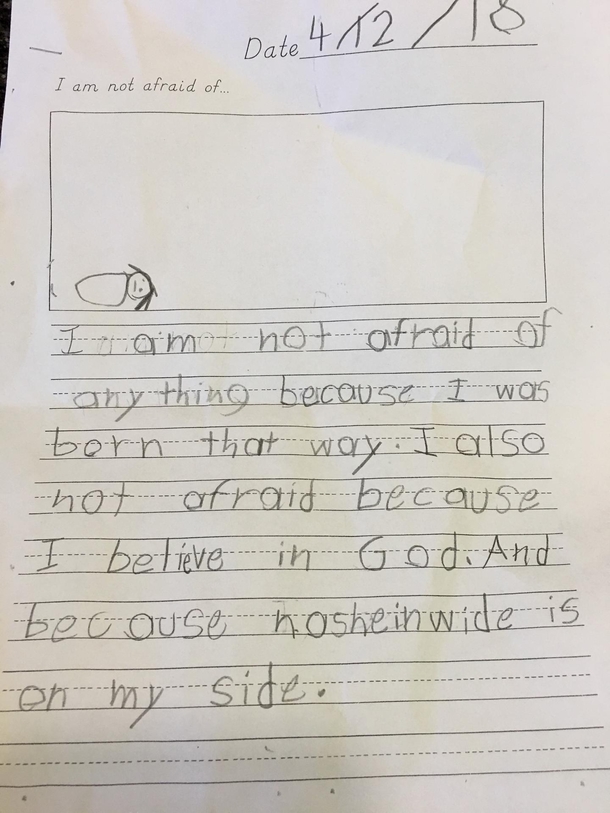 Date 4/12/18
I am not afraid of...
I am not afraid of
any thing because I was
born that way. I also
not afraid because
I believe in God. And
because nosheinwide is
on my side.